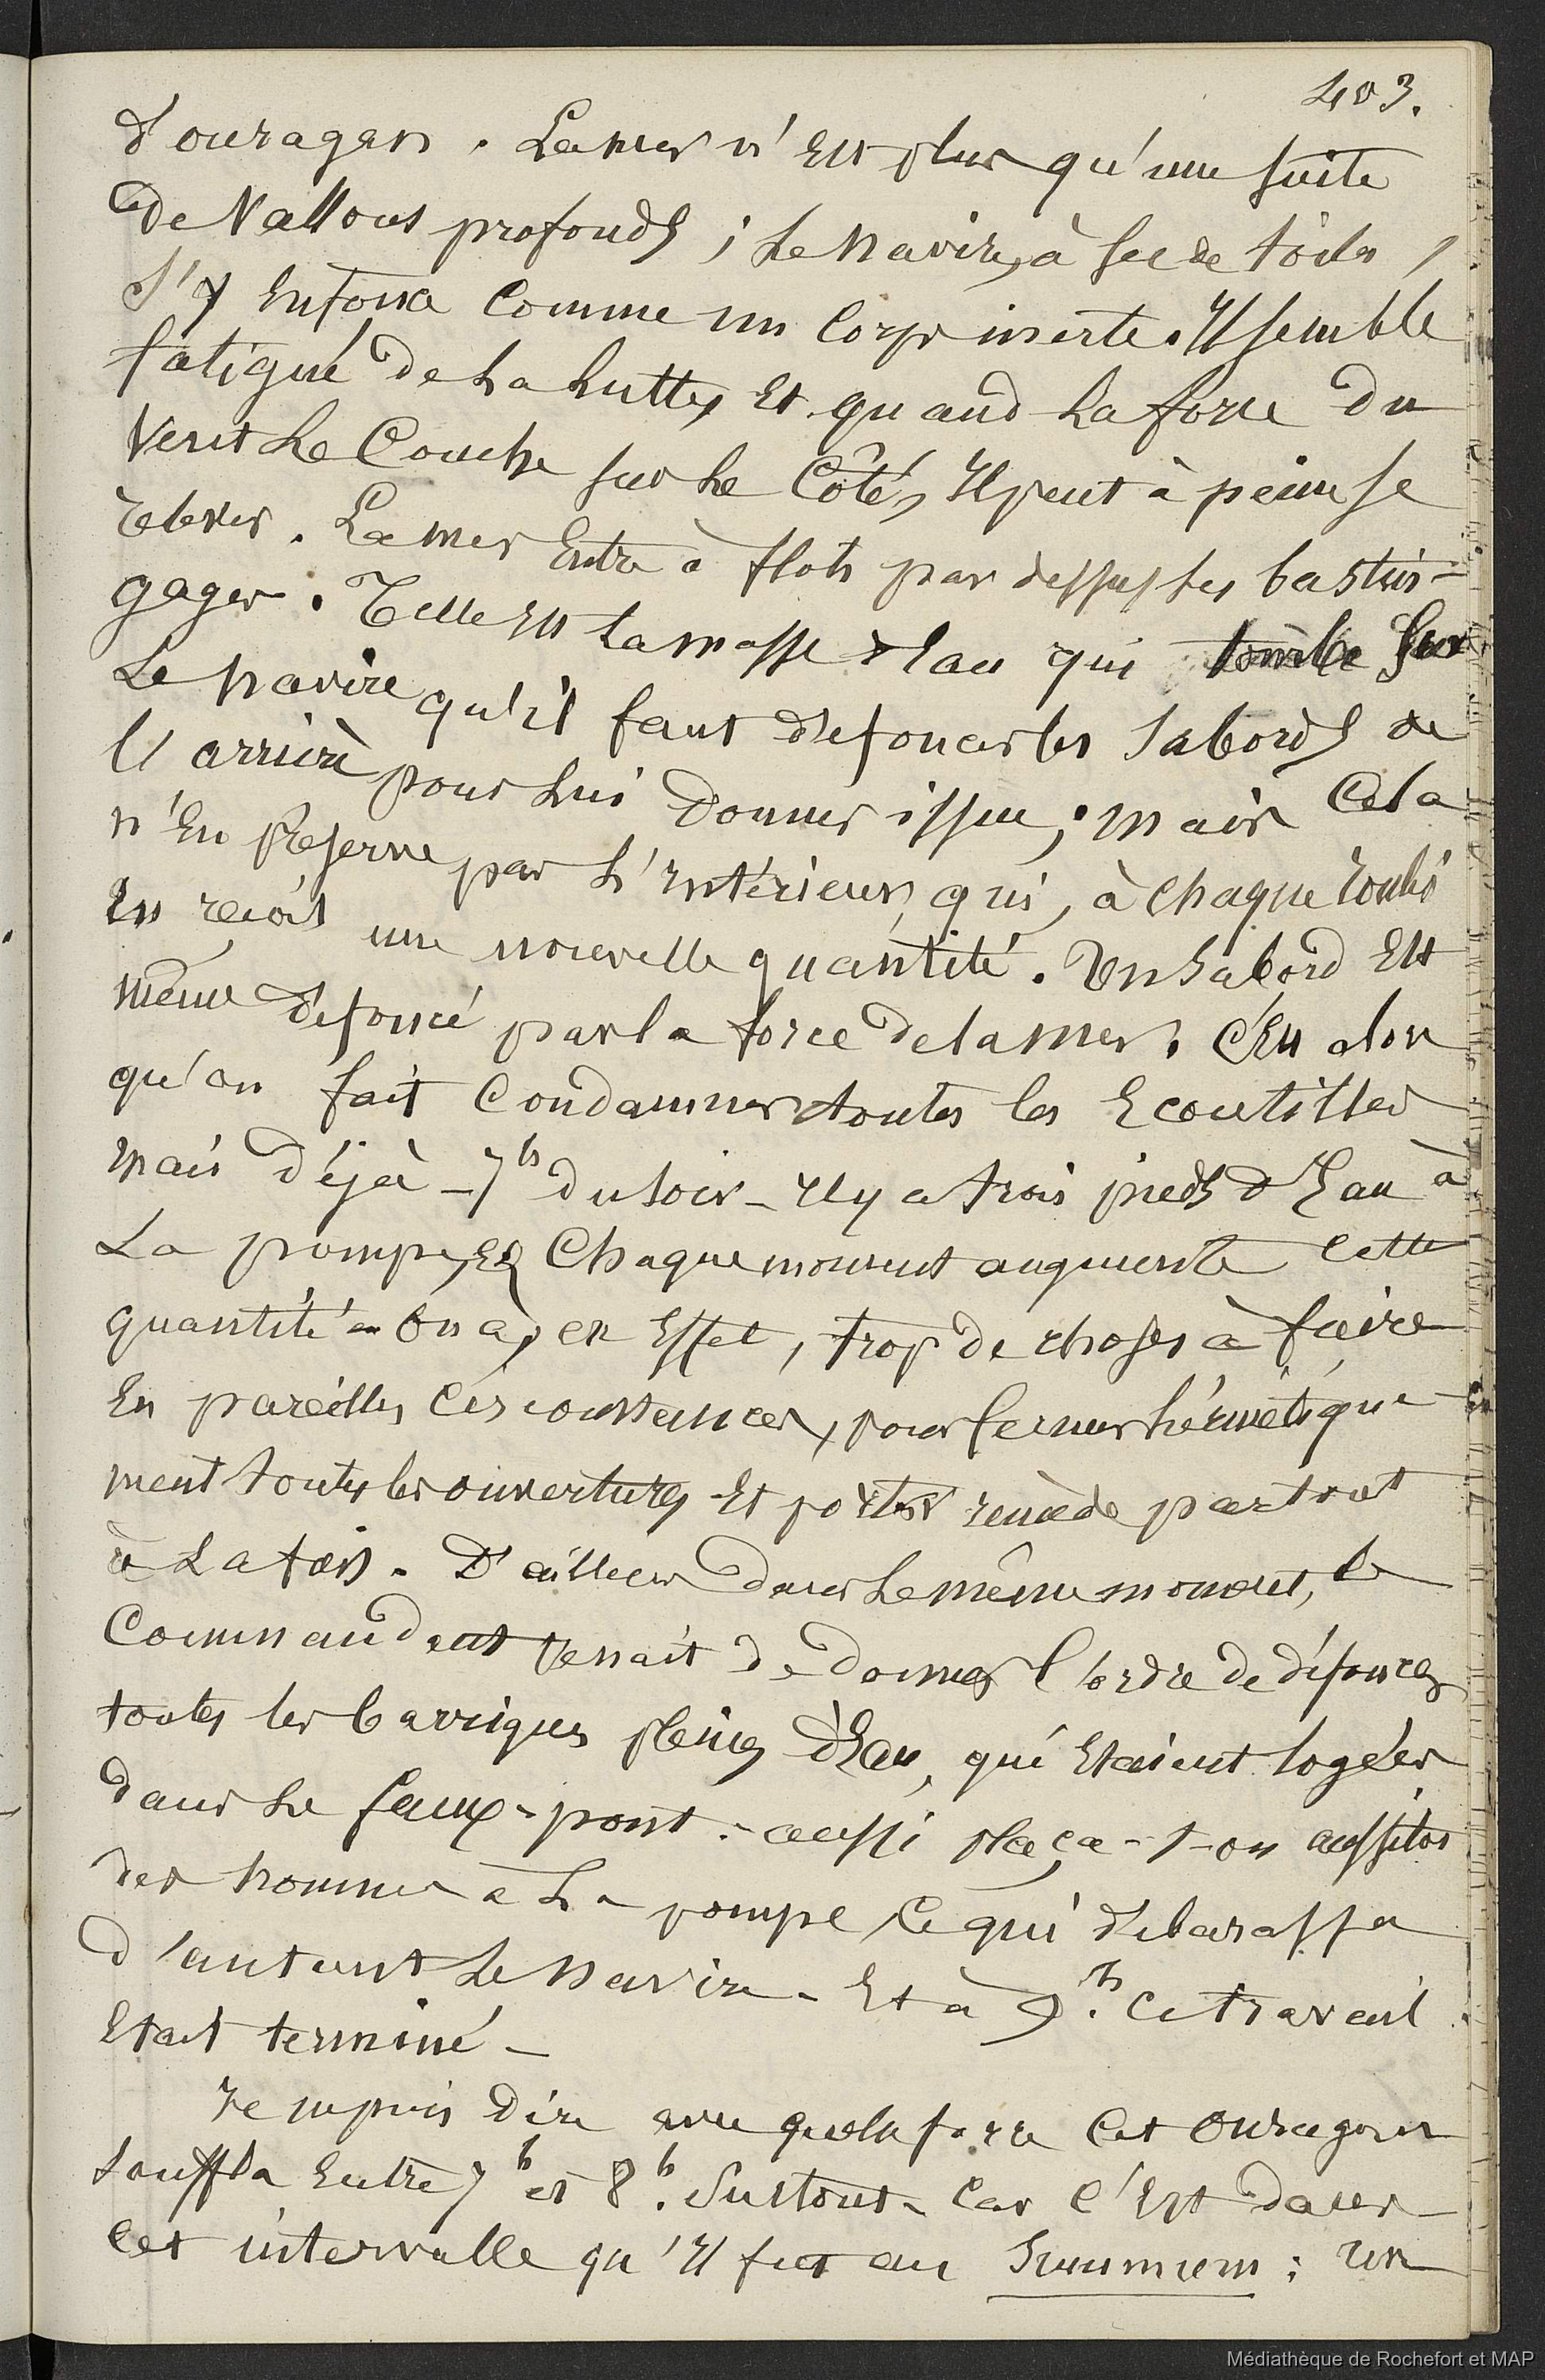 403.
d'ouragan. La mer n'est plus qu'une suite
de vallons profonds ; le navire, à sec de toiles,
s'y enfonce comme un corps inerte. Il semble
fatigué de la lutte, et quand la force du
vent le couche sur le côté, Il peut à peine se
relever. La mer entre à flots par dessus les bastin-
gages. Telle est la masse d'eau qui tombe sur
le navire qu'il faut défoncer les sabords de
l'arrière pour lui donner issue ; mais cela
n'en préserve pas l'intérieur, qui, à chaque roulis
en reçoit une nouvelle quantité. Un sabord est
même défoncé par la force de la mer. C'est alors
qu'on fait condamner toutes les Ecoutilles
mais déjà - 7h du soir - Il y a trois pieds d'Eau à
la pompe, et chaque moment augmente cette
quantité - On a, en effet, trop de choses à faire
En pareilles circonstances, pour fermer hérmétique-
ment toutes les ouvertures et porter remède partout
à la fois. D'ailleurs dans le même moment, le
Commandant venait de donner l'ordre de défoncer
toutes les barriques pleines d'Eau, qui étaient logées
dans le faux-pont. - aussi plaça-t-on aussitôt
des hommes à la pompe, ce qui débarassa
d'autant le navire - Et à 9h. ce travail
Etait terminé -
Je ne puis dire avec quelle force cet ouragan
souffla entre 7h et 8h. Surtout - car c'est dans
cet intervalle qu'il fut au Summum : un
Médiathèque de Rochefort et MAP